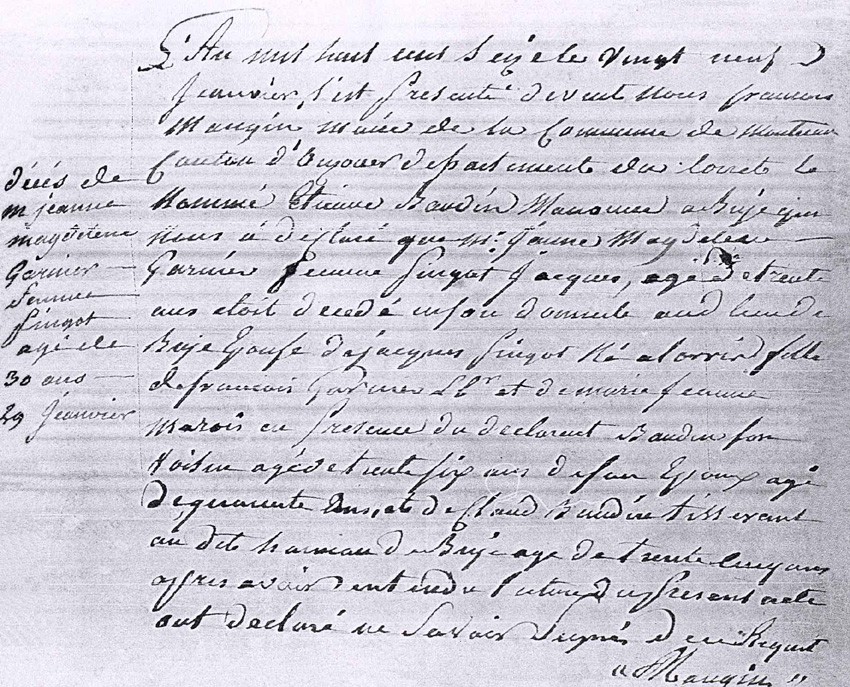 décès de
m jeanne
magdelene
Garnier
femme
pingot
agé de
30 ans
29 Jeanvier
L'An mil huit cent seize le vingt neuf
Jeanvier, s'est presenté devant nous francois
Maugin maire de la Commune de Montereau
Canton d'Ouzouer departement du loiret le
Nommé Etienne Baudin Manouvre a
nous a declaré que Mie Jeanne Magdelene
Garnier femme pingot Jacques, agé de trente
ans etoit decedé en son domicile aud lieu de
Epouse de jacques pingot Né a lorris fille
de francois Garnier Lbr et de marie femme
Marois en presence du declarent Baudin son
Voisin agé de trente six ans de son Epoux agé
de quarente Ans, et de Claud Baudin tisserant
au dit hameau de agé de trente cinq ans
apres avoir entendu lecture du present acte
ont declaré ne Savoir Signés de ce Requit
Maugin